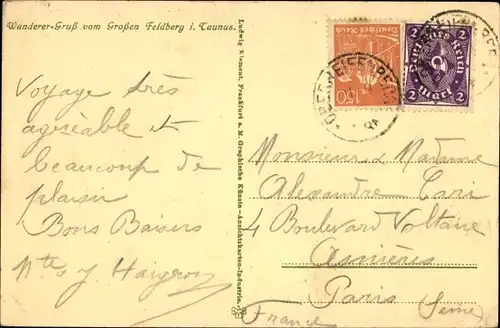 Wanderer-Gruß vom Großen Feldberg i. Taunus.
Voyage très
agréable et
beaucoup de
plaisir
Bons Baisers
Ludwig Klement, Frankfurt a. M. Graphische Künste-Ansichtskarten-Industrie.
Deutsches Reich
150
2 2
Deutsches Reich
2 Mark 2
OBERREIFENBERG
Monsieur & Madame
Alexandre
4 Boulevard Voltaire
Asnières
Paris (Seine)
France